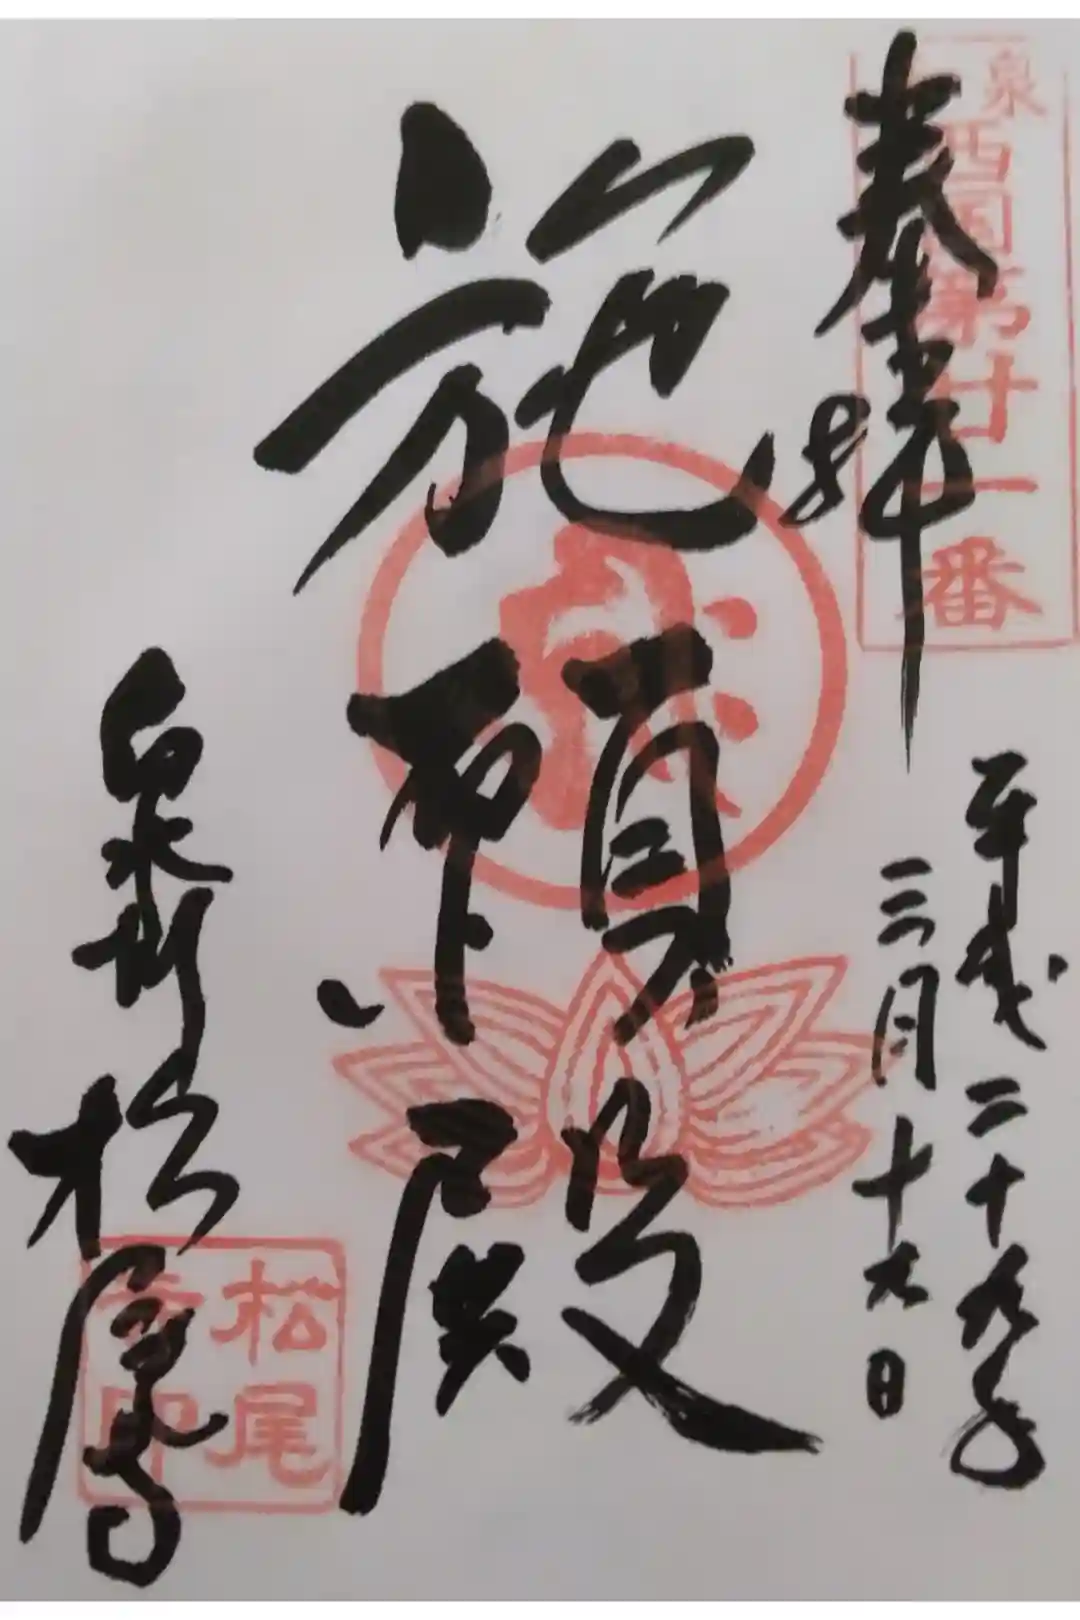 奉拝
泉西国第廿一番
平成二十九年
三月十六日
施願殿
泉州松尾寺
松尾寺印